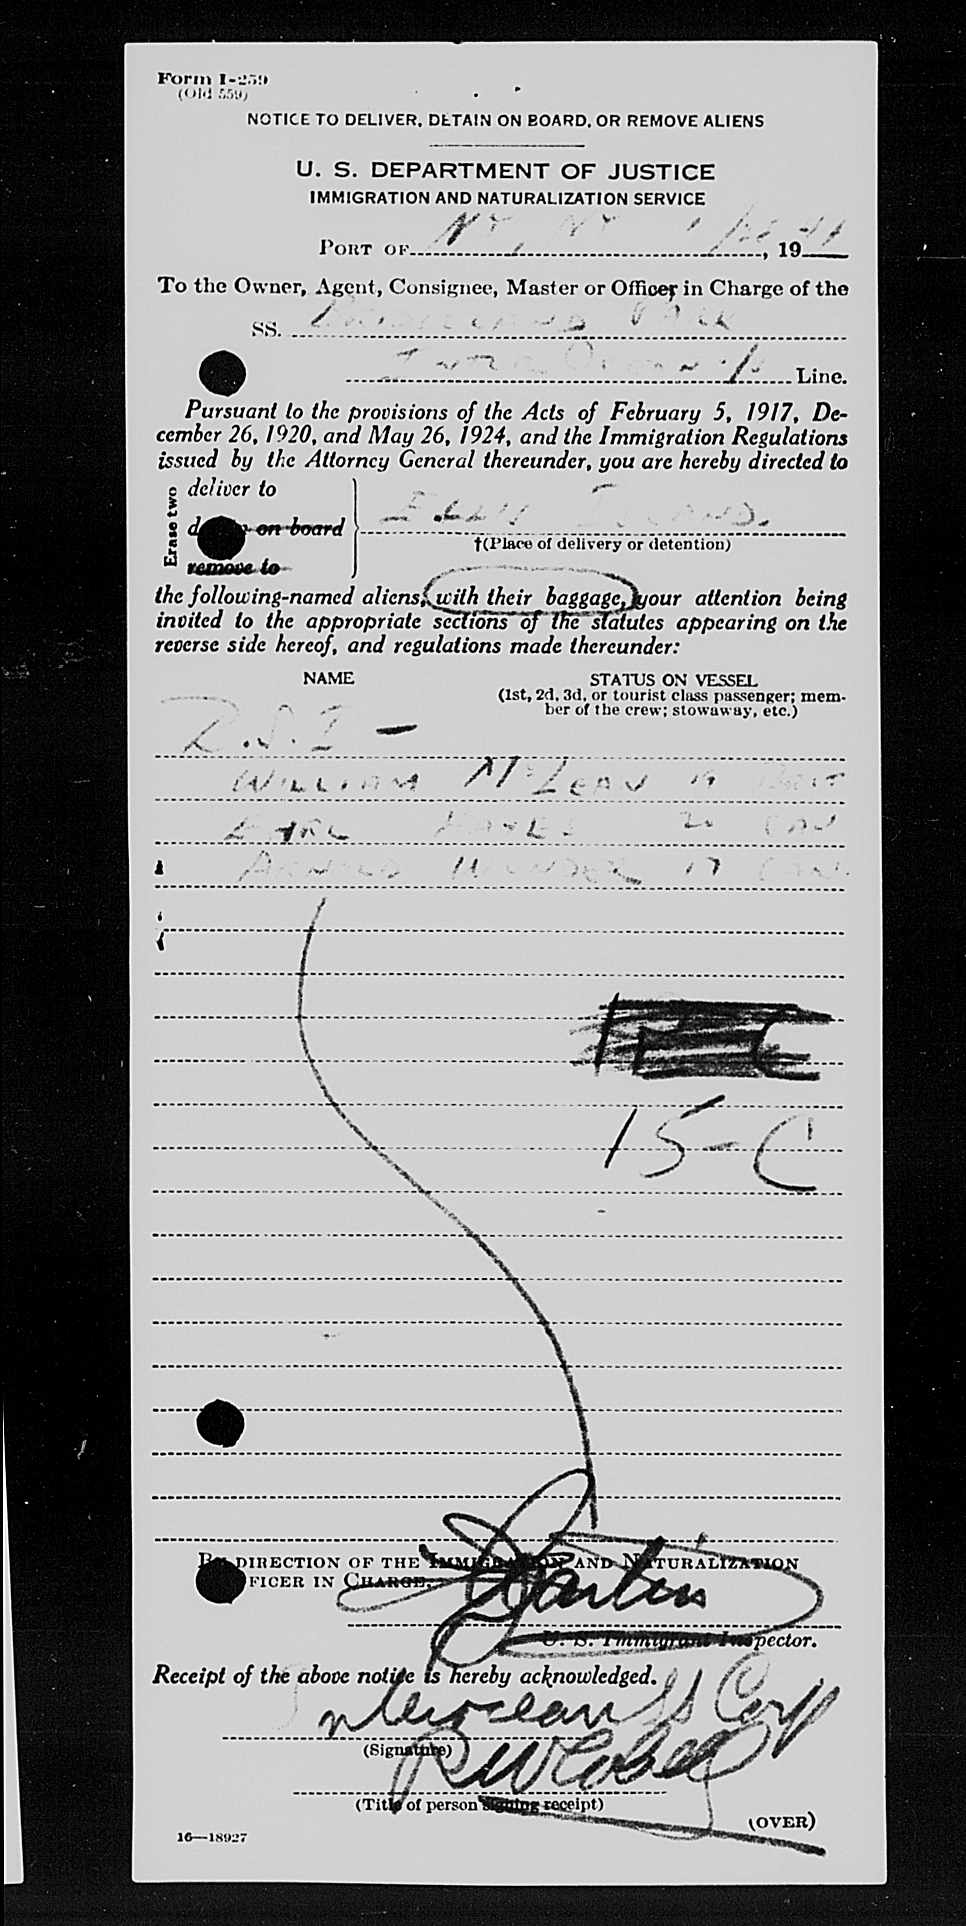 Form I-259
(Old 559)
NOTICE TO DELIVER, DETAIN ON BOARD, OR REMOVE ALIENS
U. S. DEPARTMENT OF JUSTICE
IMMIGRATION AND NATURALIZATION SERVICE
PORT OF NY, NY, 19
To the Owner, Agent, Consignee, Master or Officer in Charge of the
SS. PARK
Line.
Pursuant to the provisions of the Acts of February 5, 1917, De-
cember 26, 1920, and May 26, 1924, and the Immigration Regulations
issued by the Attorney General thereunder, you are hereby directed to
Erase two
deliver to
ELLIS ISLAND.
on board
†(Place of delivery or detention)
remove to
the following-named aliens, with their baggage, your attention being
invited to the appropriate sections of the statutes appearing on the
reverse side hereof, and regulations made thereunder:
NAME STATUS ON VESSEL
(1st, 2d, 3d, or tourist class passenger; mem-
ber of the crew; stowaway, etc.)
WILLIAM McLEAN 19 BRIT
EARL HAYES 20 CAN
ARNOLD 17 CAN.
15-C
BY DIRECTION OF THE IMMIGRATION AND NATURALIZATION
FICER IN CHARGE.
U. S. Immigrant Inspector.
Receipt of the above notice is hereby acknowledged.
Interocean SS Corp
(Signature)
(Title of person signing receipt)
(OVER)
16—18927